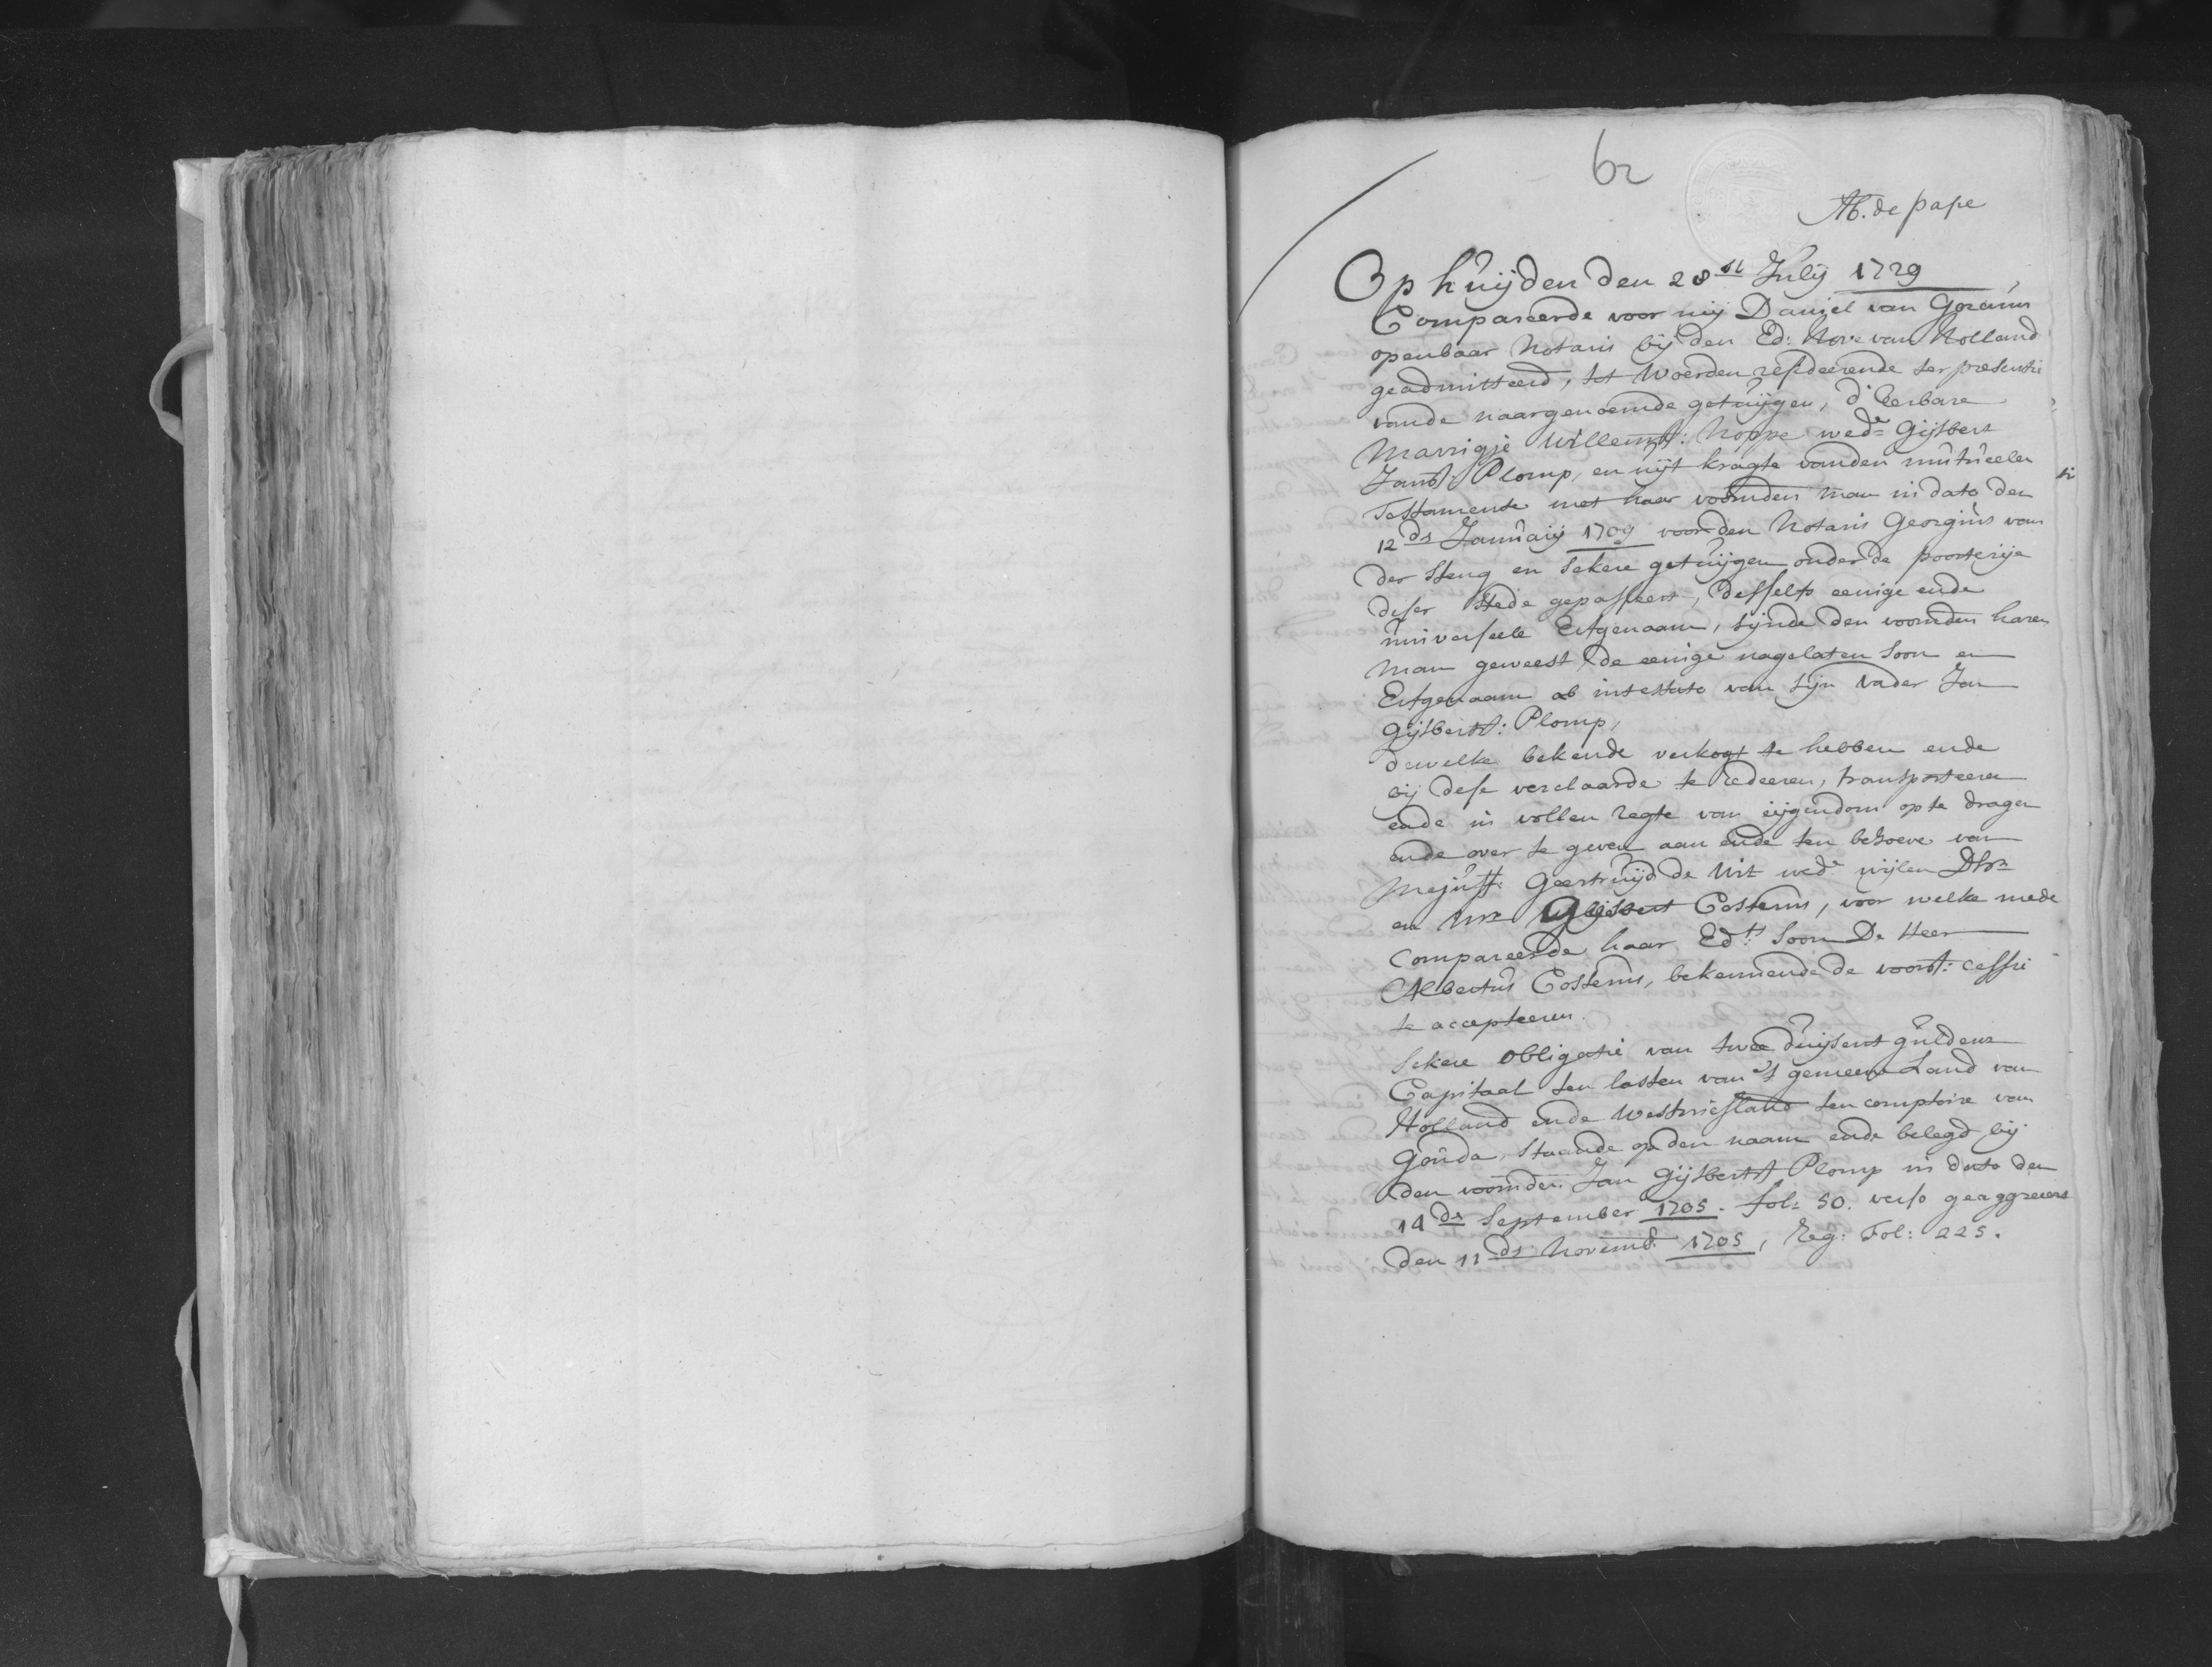 62
Ab. de pape
Op huijden den 28st Julij 1729
Compareerde voor mij Daniel van Gorcum
openbaar Notaris bij den Ed: Hove van Holland
geadmitteerd, tot Woerden resideerende ter presentie
vande naargenoemde getuijgen, d'Eerbare
Marrigje Willemsd: Hoppe wede Gijsbert
Jansz: Plomp, en uijt kragte vanden mutueelen
Testamente met haar voornden man in dato den
12ds Januaij 1709 voor den Notaris Georgius van
der Steng en sekere getuijgen onder de poorterije
deser stede gepasseert, desselfs eenige ende
universeele Erfgenaam, sijnde den voornden haren
man geweest de eenige nagelaten soon en
Erfgenaam ab intestato van sijn vader Jan
Gijsbertsz: Plomp,
dewelke bekende verkogt te hebben ende
bij dese verclaarde te cedeeren, transporteeren
ende in vollen regte van eijgendom op te dragen
ende over te geven aan ende ten behoeve van
Mejuff: Geertruijd de Wit wede wijlen Dhr
en Mr Gijsbert Costerus, voor welke mede
Compareerde haar Ed:ts soon De Heer
Albertus Costerus, bekennende de voorsz: cessie
te accepteeren.
Sekere Obligatie van twee duijsent guldens
Capitaal ten lasten van 't gemeene Land van
Holland ende Westvriesland ten comptoire van
Gouda, staande op den naam ende belegd bij
den voornden Jan Gijsbertsz Plomp in dato den
14ds September 1705. fol: 50. verso geaggreeert
den 11ds Novemb: 1705, Reg: Fol: 225.